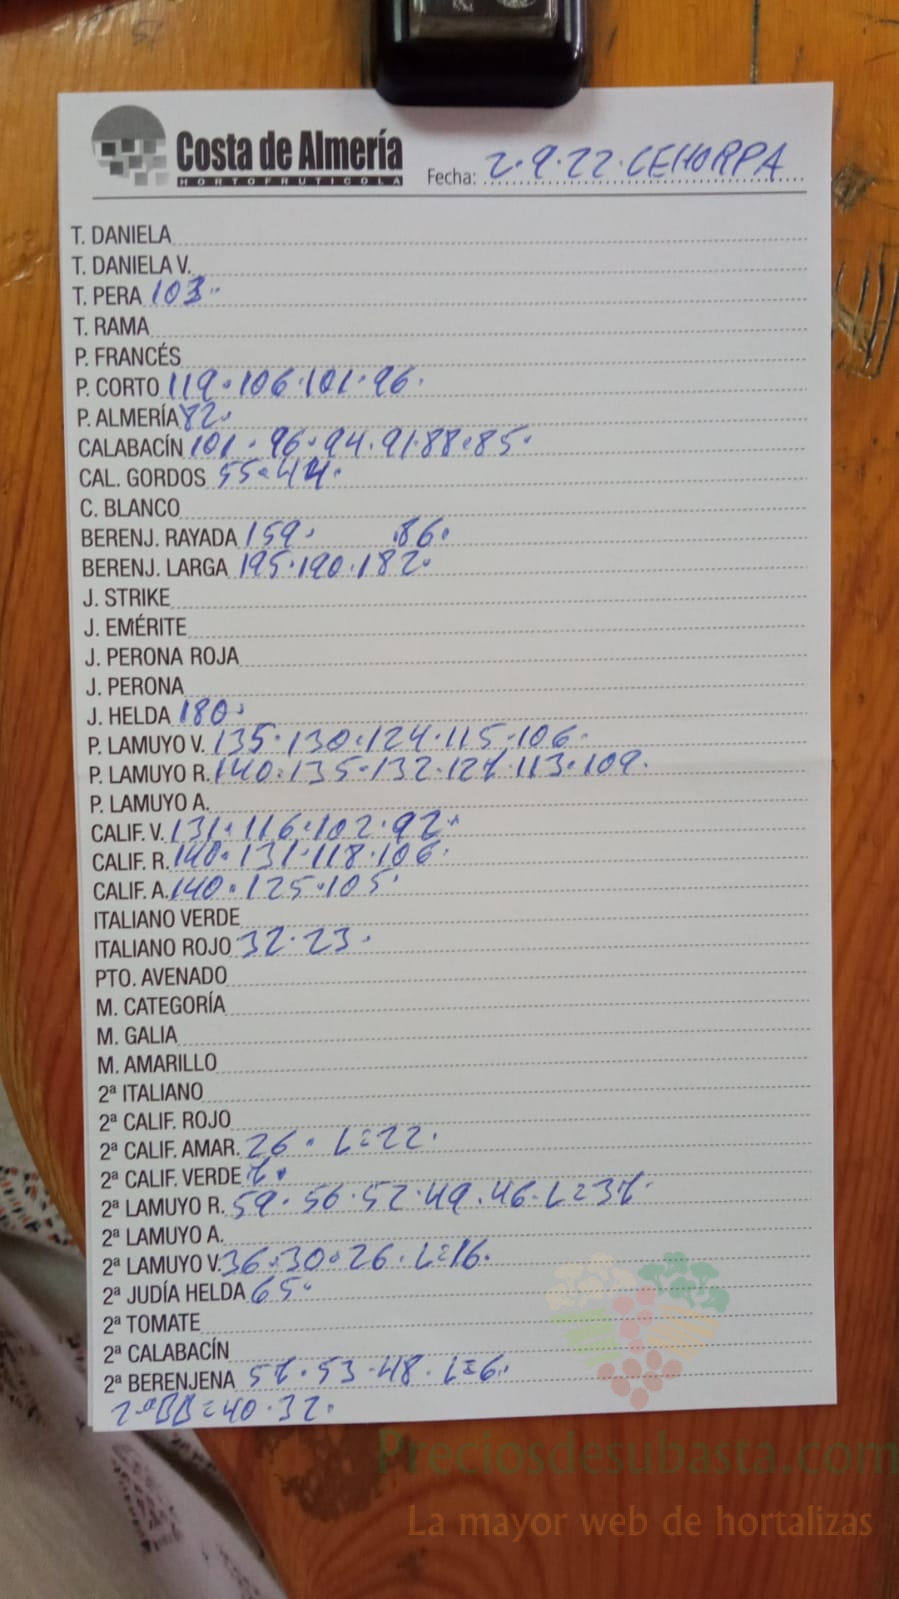 Costa de Almería
HORTOFRUTICOLA
Fecha: 2.9.22.CEHORPA
T. DANIELA
T. DANIELA V.
T. PERA 103.
T. RAMA
P. FRANCÉS
P. CORTO 119.106.101.96.
P. ALMERÍA 82.
CALABACÍN 101.96.94.91.88.85.
CAL. GORDOS 55.44.
C. BLANCO
BERENJ. RAYADA 159. .86.
BERENJ. LARGA 195.190.182.
J. STRIKE
J. EMÉRITE
J. PERONA ROJA
J. PERONA
J. HELDA 180.
P. LAMUYO V. 135.130.124.115.106.
P. LAMUYO R. 140.135.132.127.113.109.
P. LAMUYO A.
CALIF. V. 131.116.102.92.
CALIF. R. 140.131.118.106.
CALIF. A. 140.125.105.
ITALIANO VERDE
ITALIANO ROJO 32.23.
PTO. AVENADO
M. CATEGORÍA
M. GALIA
M. AMARILLO
2ª ITALIANO
2ª CALIF. ROJO
2ª CALIF. AMAR. 26. L=22.
2ª CALIF. VERDE
2ª LAMUYO R. 59.56.52.49.46.L=37.
2ª LAMUYO A.
2ª LAMUYO V. 36.30.26.L=16.
2ª JUDÍA HELDA 65.
2ª TOMATE
2ª CALABACÍN
2ª BERENJENA 57.53.48.L=6.
2ªBB=40.32.
Preciosdesubasta.com
La mayor web de hortalizas